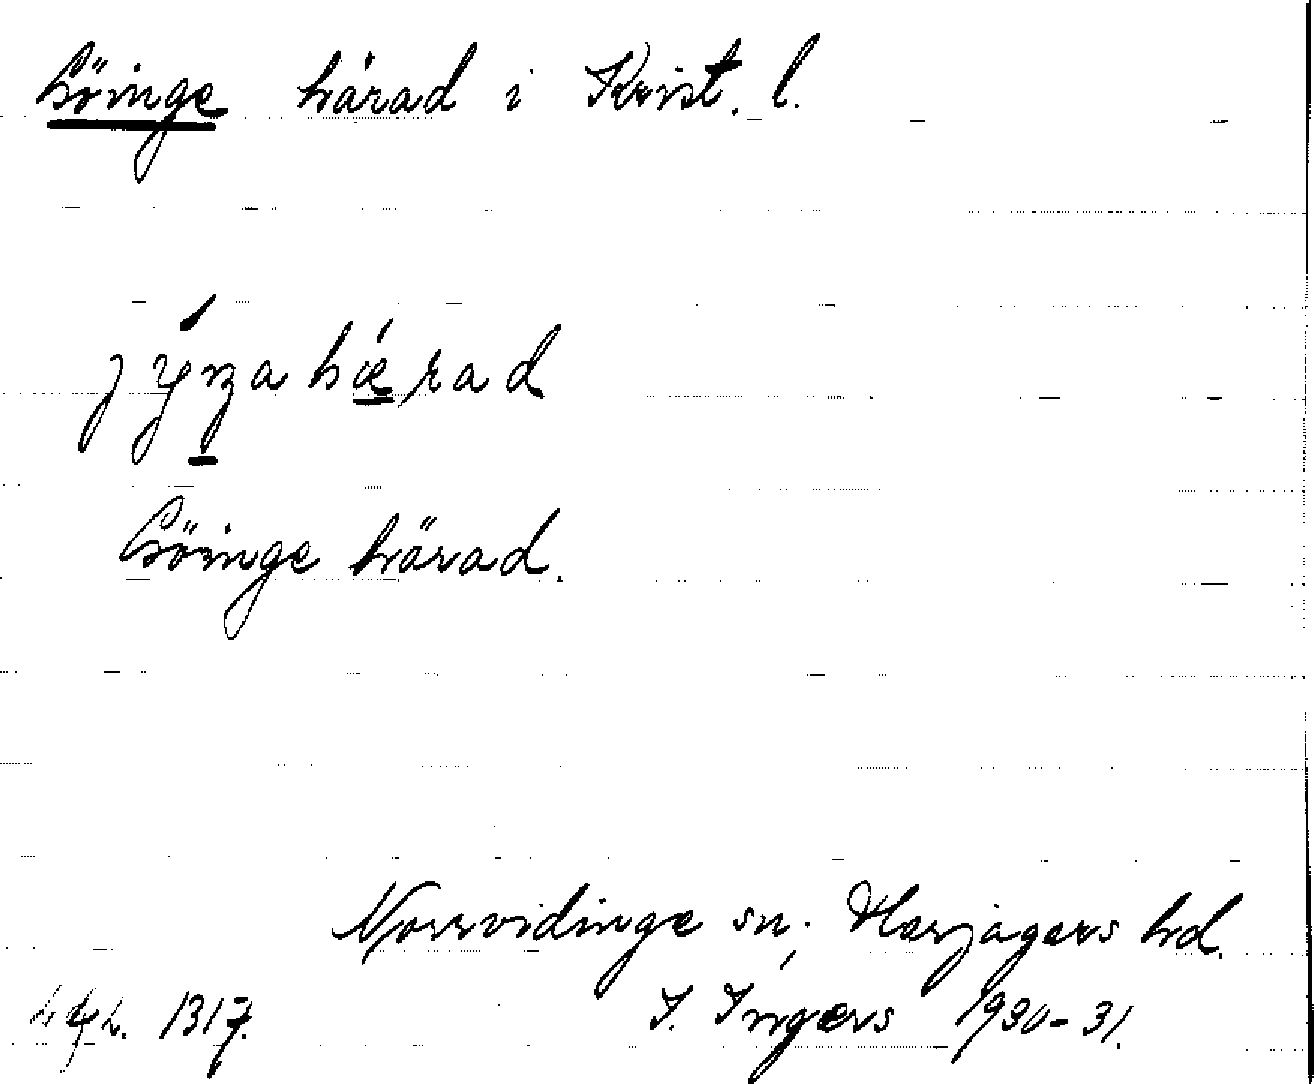 Göinge härad i Krist. l.
jyŋahærad
Göinge härad.
Norrvidinge sn; Harjagers hd.
1317. I. Ingers 1930-31.